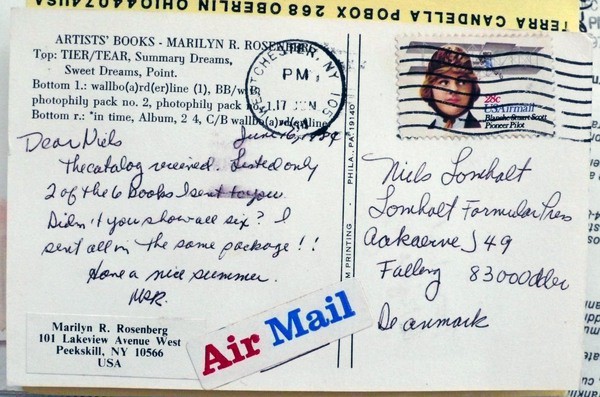 TERRA CANDELLA POBOX 268 OBERLIN OHIO44074USA
ARTISTS' BOOKS - MARILYN R. ROSENBERG
Top: TIER/TEAR, Summary Dreams,
Sweet Dreams, Point.
Bottom 1.: wallbo(a)rd(er)line (1), BB/w
photophily pack no. 2, photophily pack
Bottom r.: *in time, Album, 2 4, C/B wallbo(a)rd(er)line
WESTCHESTER, NY 105
PM
17 JUN
28c
USAirmail
Blanche Stuart Scott
Pioneer Pilot
June 16, 1984
Dear Niels
The catalog received. Listed only
2 of the 6 Books I sent to you.
Didn't you show all six? I
sent all in the same package!!
Have a nice summer.
MRR.
Marilyn R. Rosenberg
101 Lakeview Avenue West
Peekskill, NY 10566
USA
Air Mail
M PRINTING - PHILA., PA 19140
Niels Lomholt
Lomholt Formular Press
Aakaerve J 49
Falling 8300 Odder
Deanmark